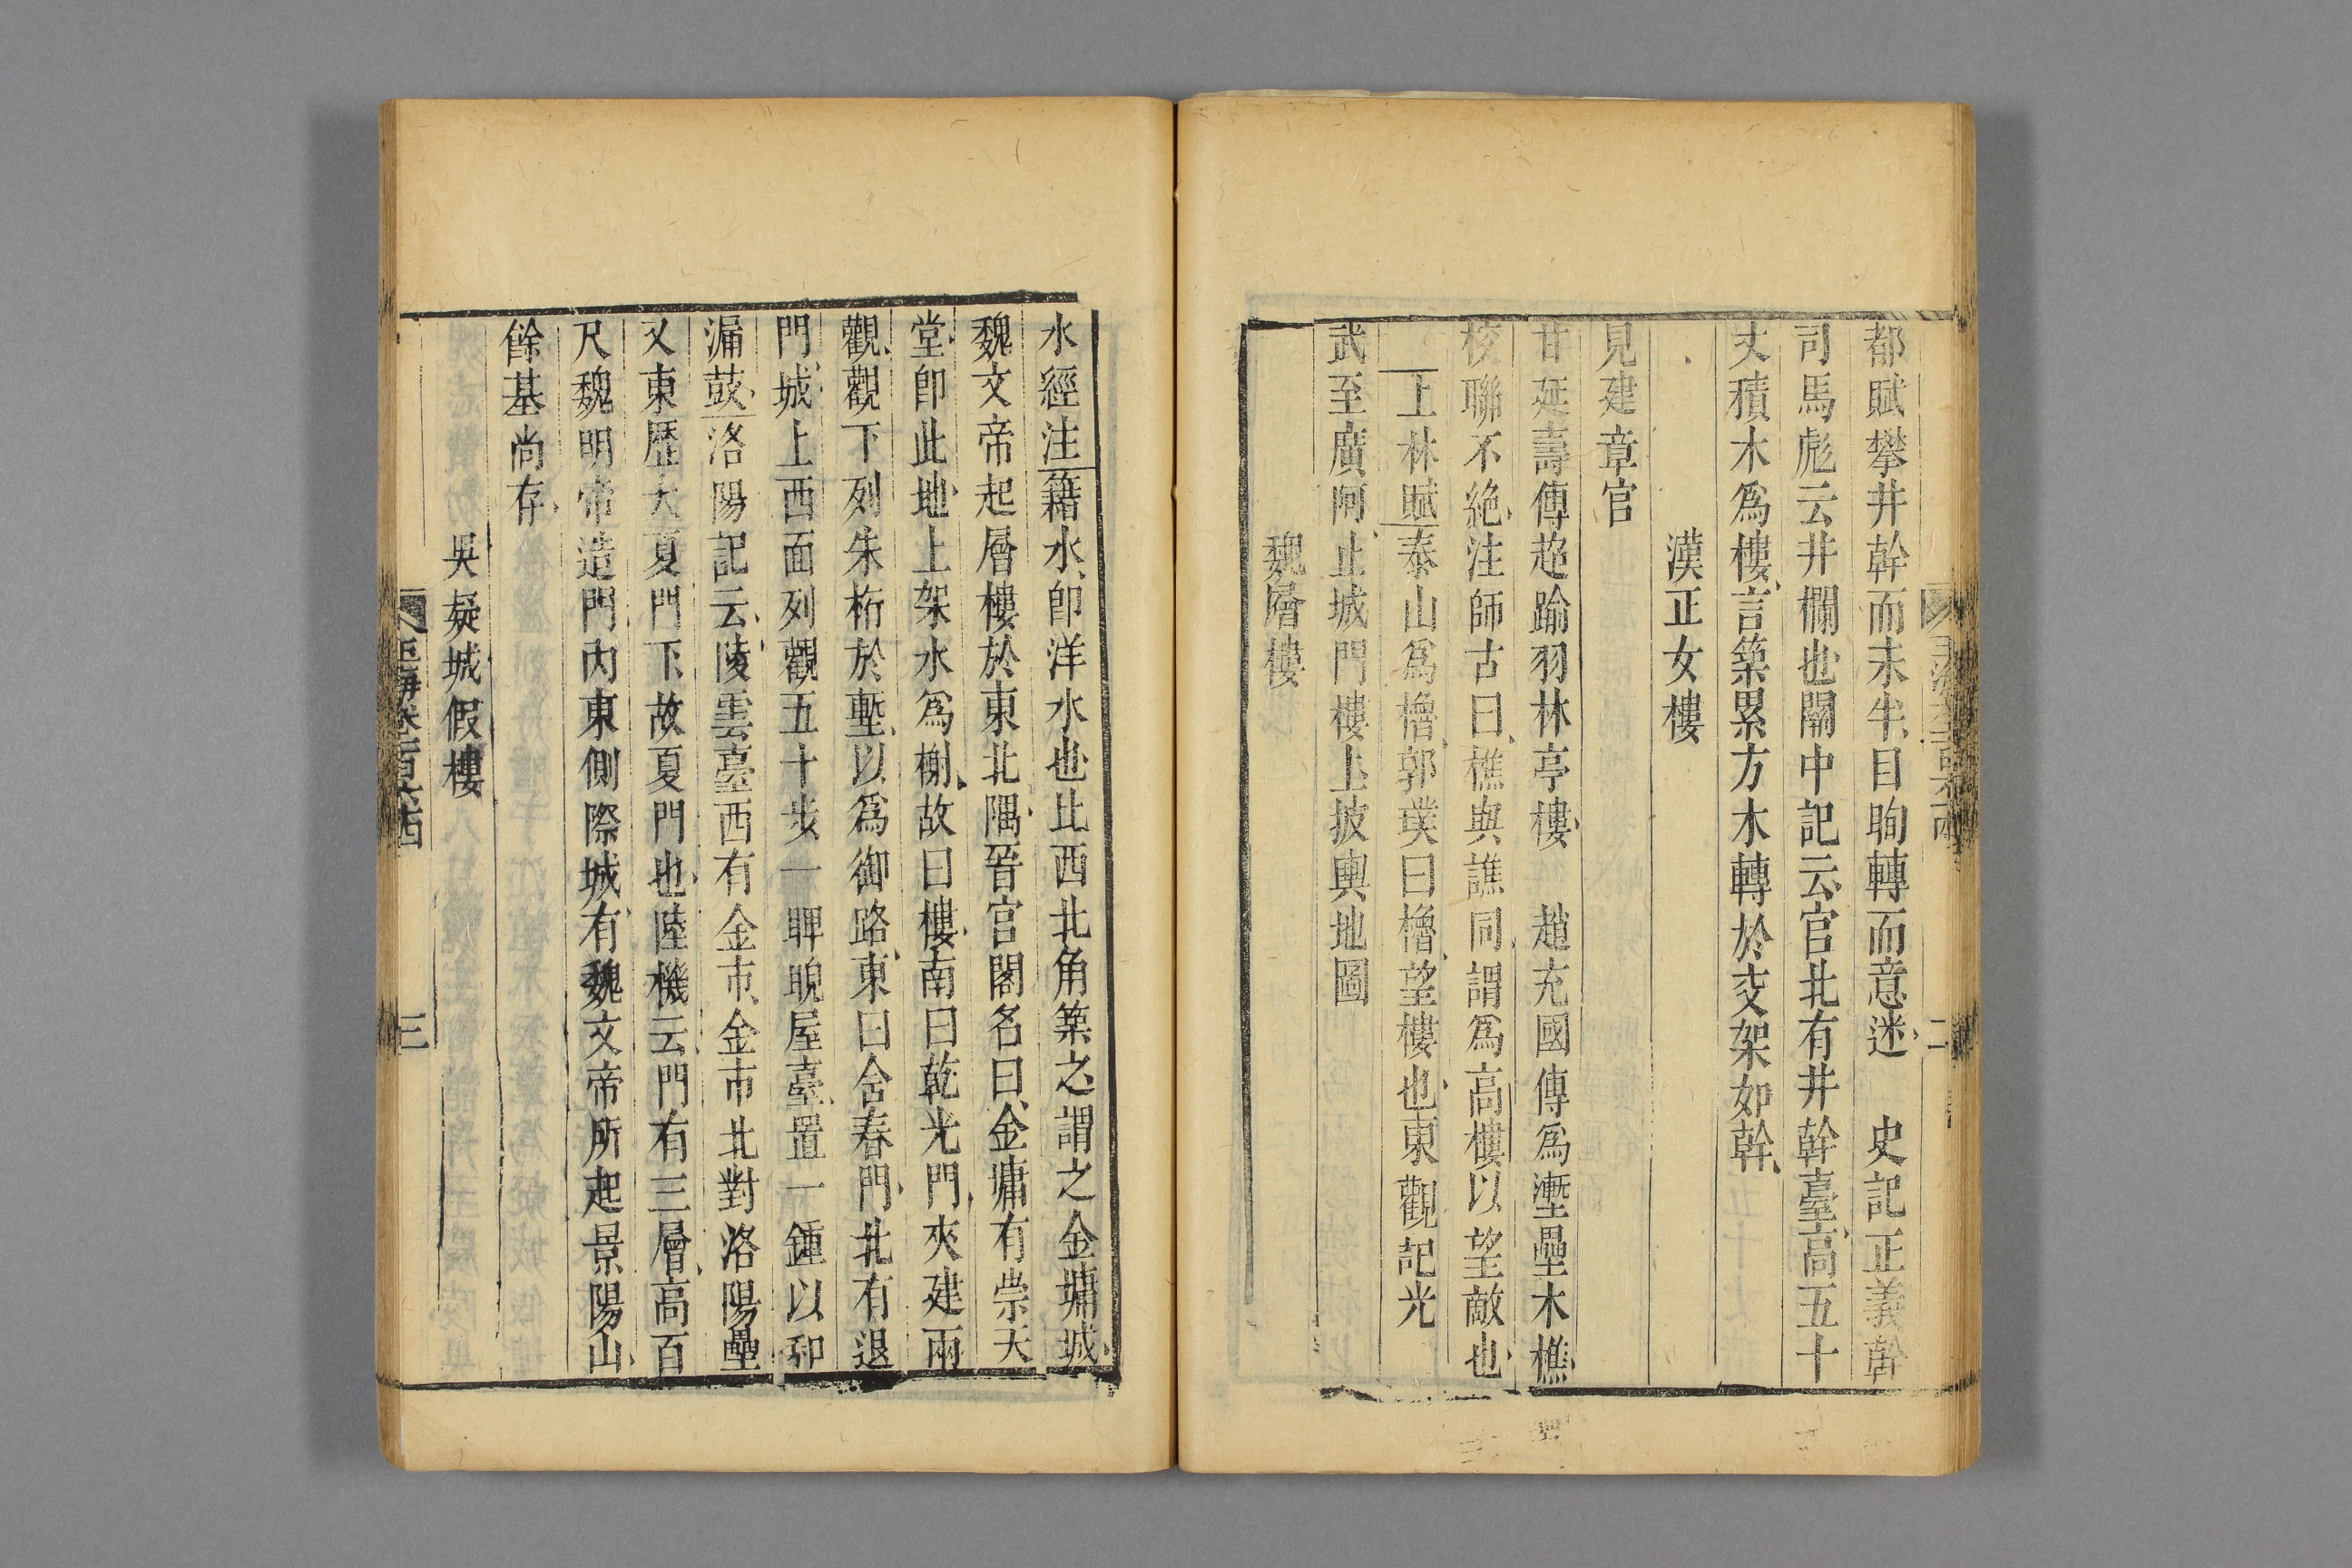 都賦攀井幹而未半目眴轉而意迷　史記正義幹
司馬彪云井欄也關中記云宫北有井幹臺高五十
丈積木爲樓言築累方木轉於交架如幹
漢正女樓
見建章宫
甘延壽傳超踰羽林亭樓　趙充國傳爲壍壘木樵
校聯不絶注師古曰樵與譙同謂爲高樓以望敵也
上林賦泰山爲櫓郭璞曰櫓望樓也東觀記光
武至廣阿止城門樓上披輿地圖
魏層樓
水經注籍水卽洋水也北西北角築之謂之金墉城
魏文帝起層樓於東北隅晉宫閣名曰金墉有崇天
堂卽此地上架水爲榭故曰樓南曰乾光門夾建兩
觀觀下列朱桁於壍以爲御路東曰含春門北有退
門城上西面列觀五十步一睥睨屋臺置一鍾以和
漏鼓洛陽記云陵雲臺西有金市金市北對洛陽壘
又東歷大夏門下故夏門也陸機云門有三層高百
尺魏明帝造門内東側際城有魏文帝所起景陽山
餘基尚存
吳疑城假樓
玉海卷一百六十四
三